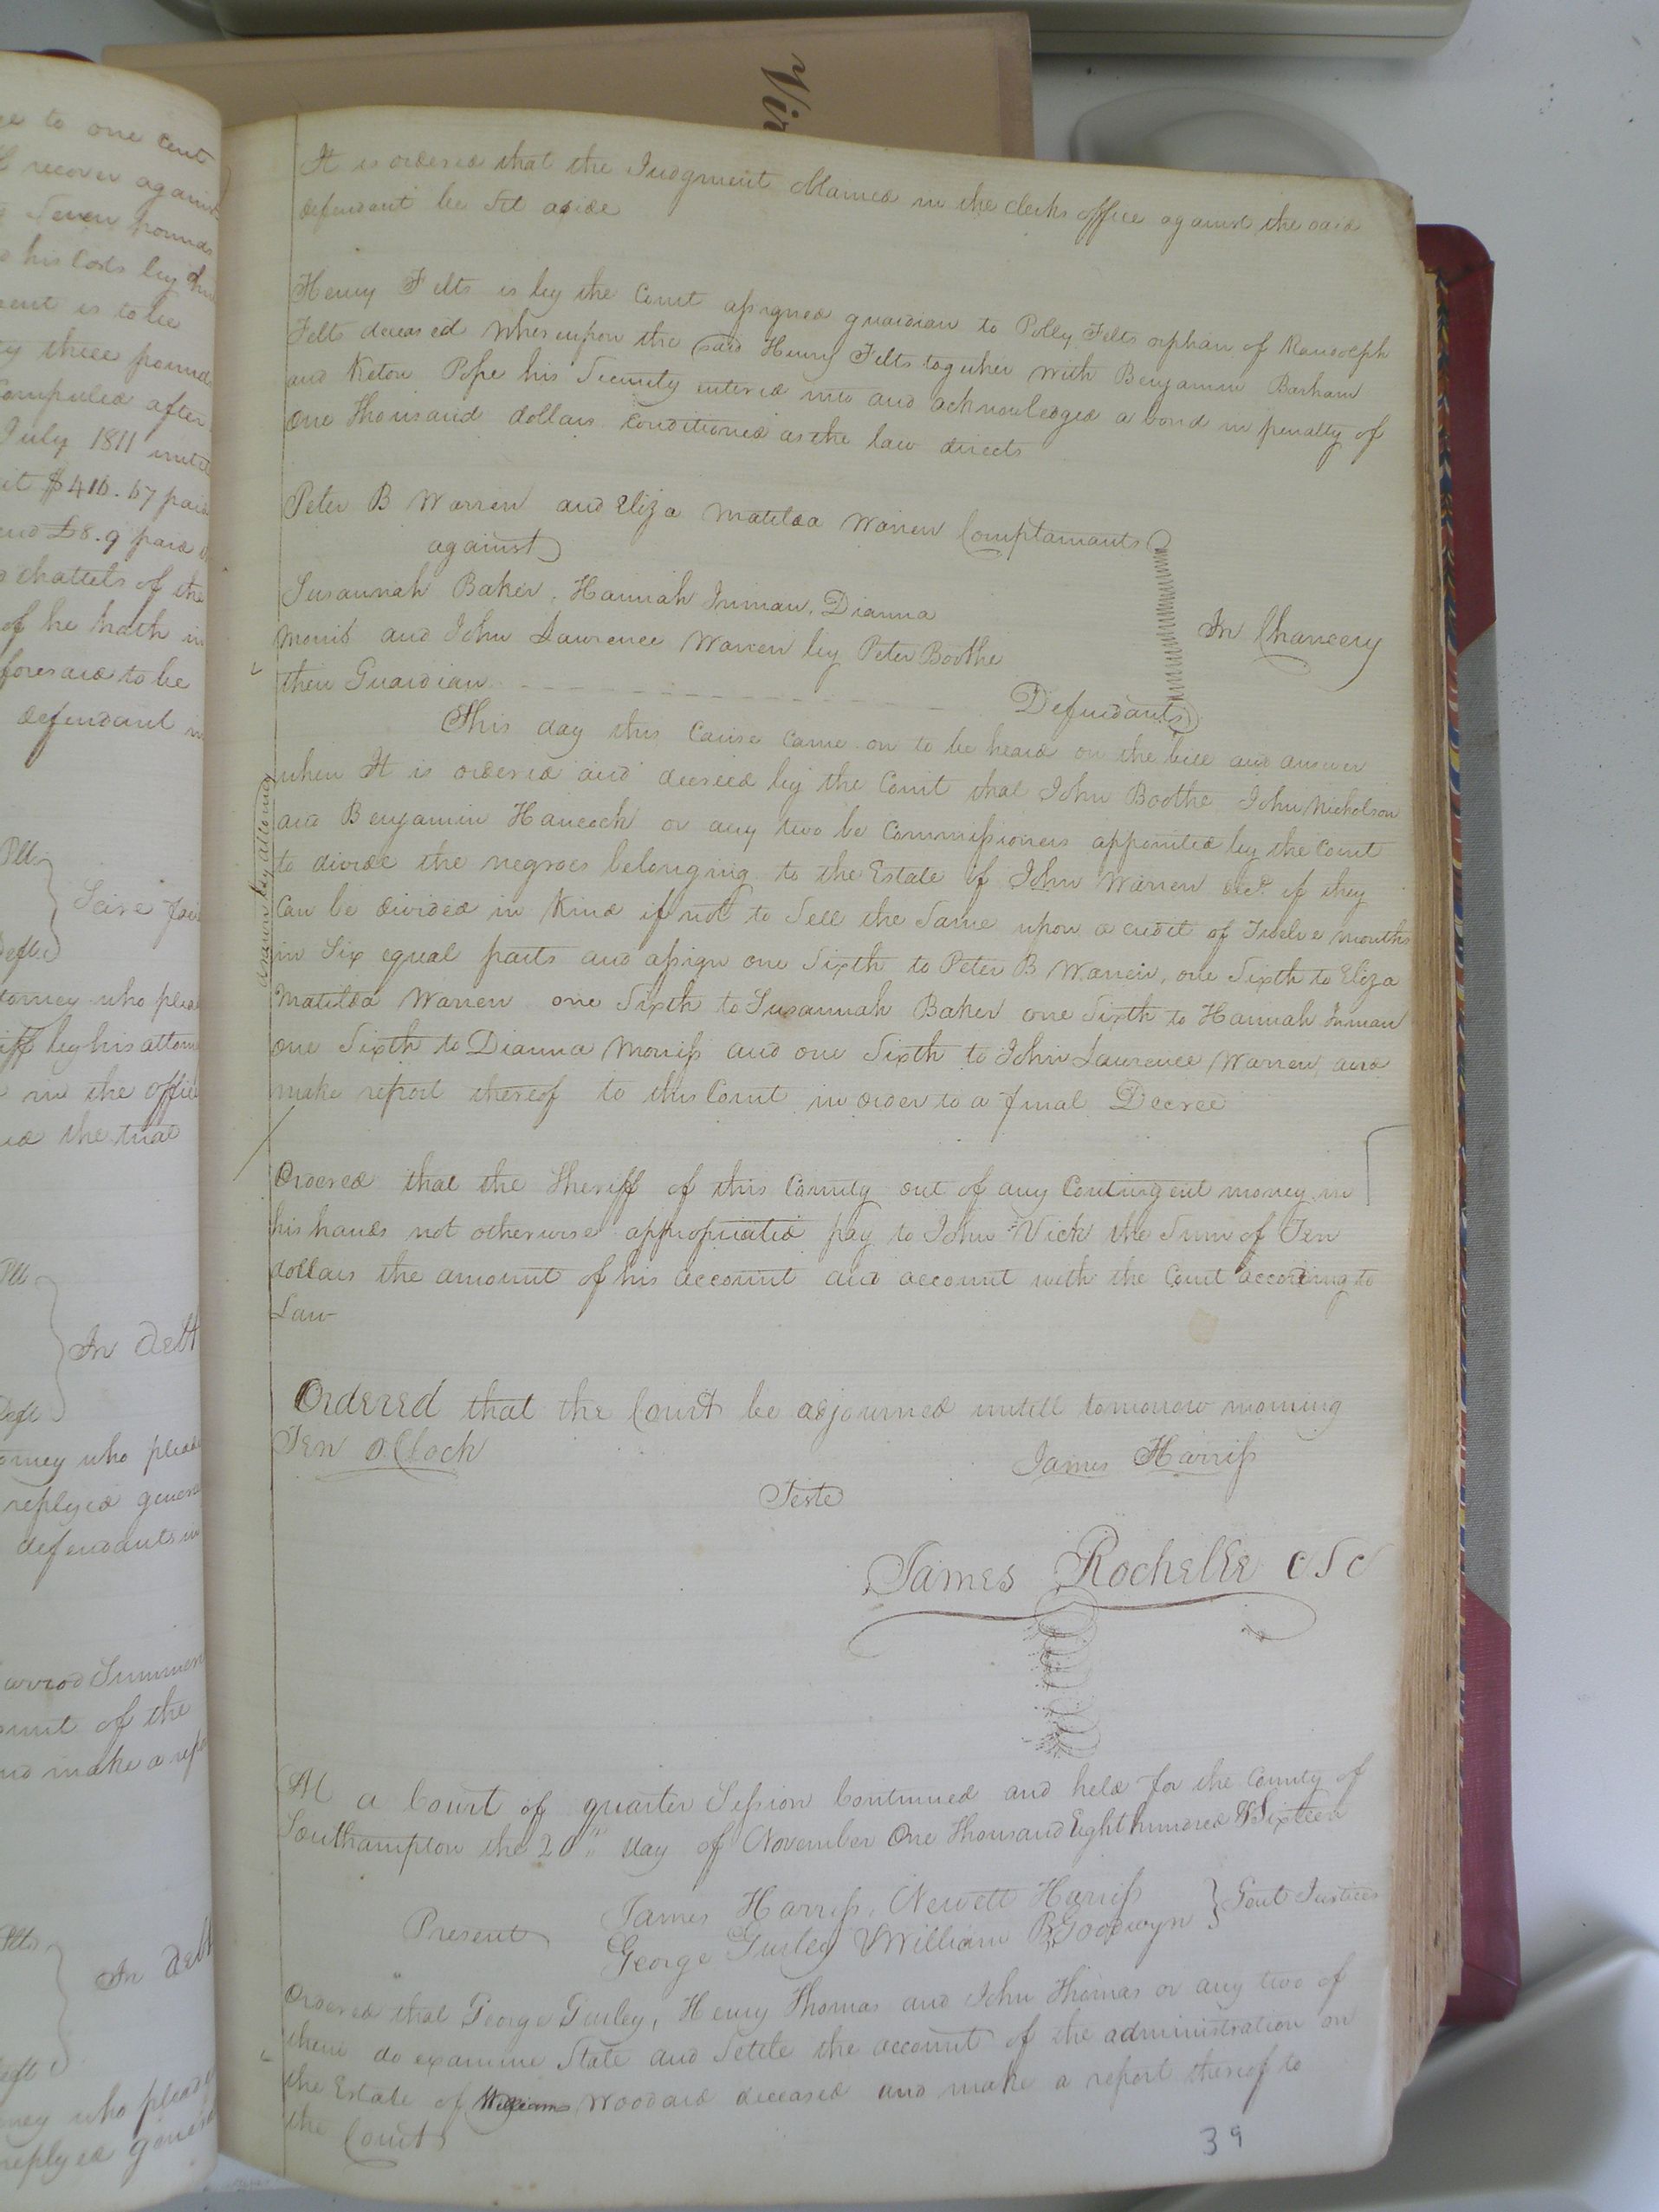 Vir
ge to one cent
recover against
Seven pounds
his Costs by
ent is to be
ty three pounds
Computed after
July 1811 untill
it $416.67 paid
and £8.9 paid
chattels of the
of he hath in
foresaid to be
defendant in
Plt
Scire faci
Deft
torney who plead
iff by his attorn
in the office
the trial
Plt
In Debt
Deft
orney who plead
replyed genera
defendants in
Summon
ount of the
and make a repo
Plts
In Debt
eft
rney who plead
replyed genera
It is ordered that the Judgment obtained in the clerks office against the said
defendant be Set aside
Henry Felts is by the Court assigned guardian to Polly Felts orphan of Randolph
Felts deceased Whereupon the said Henry Felts together with Benjamin Barham
and Keton Pope his Security entered into and acknowledged a bond in penalty of
One Thousand dollars conditioned as the law directs
Peter B Warren and Eliza Matilda Warren Complainants
against
Susannah Baker, Hannah Inman, Dianna
Morriss and John Laurence Warren by Peter Boothe
In Chancery
their Guardian Defendants
This day this Cause came on to be heard on the bill and answer
when It is ordered and decreed by the Court that John Boothe John Nicholson
and Benjamin Hancock or any two be Commissioners appointed by the Court
to divide the negroes belonging to the Estate of John Warren decd. if they
Can be divided in Kind if not to Sell the Same upon a credit of Twelve months
in Six equal parts and assign one Sixth to Peter B Warren, one Sixth to Eliza
Matilda Warren one Sixth to Susannah Baker one Sixth to Hannah Inman
one Sixth to Dianna Morriss and one Sixth to John Laurence Warren and
make report thereof to this Court in order to a final Decree
Ordered that the Sheriff of this County out of any Contingent money in
his hands not otherwise appropriated pay to John Vick the Sum of Ten
dollars the amount of his account and account with the Court according to
Law
Ordered that the Court be adjourned untill tomorrow morning
Ten OClock
James Harriss
Teste
James Rochelle CSC
At a Court of quarter Session Continued and held for the County of
Southampton the 20th day of November One Thousand Eight hundred & Sixteen
Present
James Harriss, Newett Harriss
George Gurley William B Goodwyn
Gent Justices
Ordered that George Gurley, Henry Thomas and John Thomas or any two of
them do examine State and Settle the account of the administration on
the Estate of Williams Woodard deceased and make a report thereof to
the Court
39